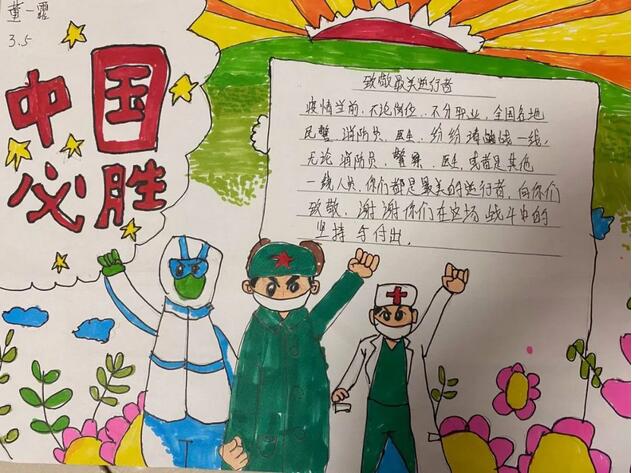 董一露
3.5
中国
必胜
致敬最美逆行者
疫情当前，不论岗位，不分职业，全国各地
民警、消防员、医生，纷纷请战一线，
无论消防员、警察、医生，或者是其他
一线人员，你们都是最美的逆行者，向你们
致敬，谢谢你们在这场战斗中的
坚持与付出。